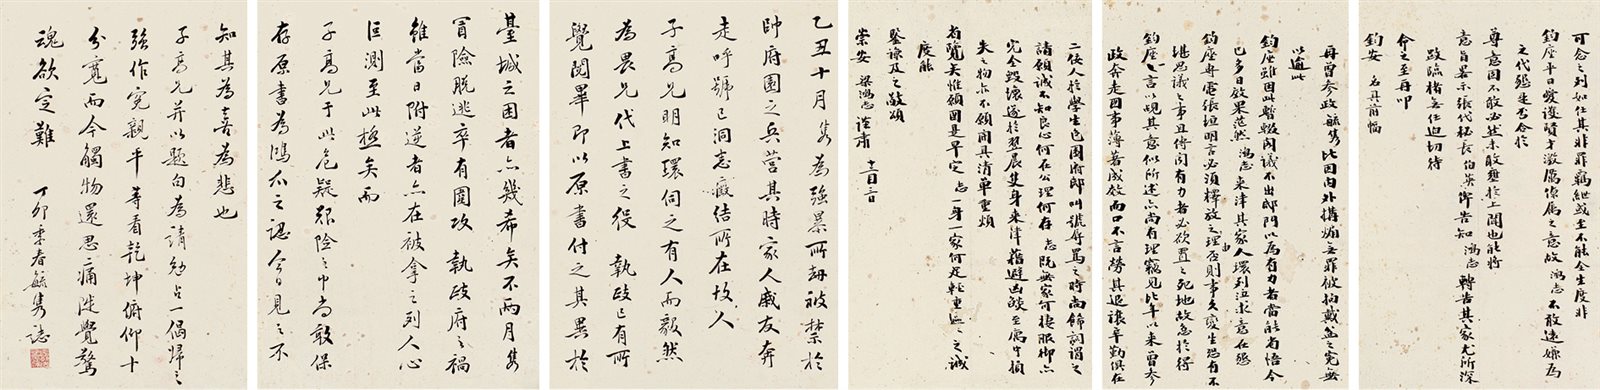 可念之列如任其非罪羈紲或至不能全生度非
鈞座平日愛護賢才激厲僚屬之意故鴻志不敢遠嫌為
之代懇是否合於
尊意因不敢必然未敢壅於上聞也能將
意旨畧示張代秘長伯英俾告知鴻志轉告其家尤所深
政臨楮無任迫切待
命之至再叩
鈞安 名具前幅
再曾參政毓雋比因內外搆煽無罪被拘戴盆之冤無
以逾此
鈞座雖因此暫輟閣議不出邸門以為有力者當能省悟今
已多日效果茫然鴻志來津其家人環到泣求意在懇
鈞座再電張垣明言必須釋放之理由否則事多變生恐有不
堪思議之事且傳聞有力者必欲置之死地故急於得
鈞座一言以覘其意似所述亦尚有理竊見比年以來曾參
政奔走國事薄著成效而口不言勞其退讓辛勤俱在
二佞人於學生邑園府邸叫號辱罵之時尚飾詞謂之
諸願誠不知良心何在公理何存志既無家可棲服御亦
完全毀壞遂於翌晨隻身來津藉避凶燄至屬中損
失之物亦不願開具清單重煩
省覽矣惟願國是早定志一身一家何足輕重區區之誠
度能
鑒諒及之敬頌
崇安 梁鴻志謹肅 十二月三日
乙丑十月雋為強暴所劫被禁於
帥府園之兵營其時家人戚友奔
走呼號已洞悉癥結所在故人
子高兄明知環伺之有人而毅然
為畏兄代上書之役 執政已有所
覺閱畢即以原書付之其異於
臺城之困者亦幾希矣不兩月雋
冒險脫逃卒有圍攻 執政府之禍
雖當日附逆者亦在被拿之列人心
叵測至此極矣而
子高兄于此危疑艱險之中尚敢保
存原書為鴻爪之認今日見之不
知其為喜為悲也
子高兄并以題句為請勉占一偈歸之
強作冤親平等看乾坤俯仰十
分寬而今觸物還思痛陡覺驚
魂欲定難
丁卯季春毓雋誌